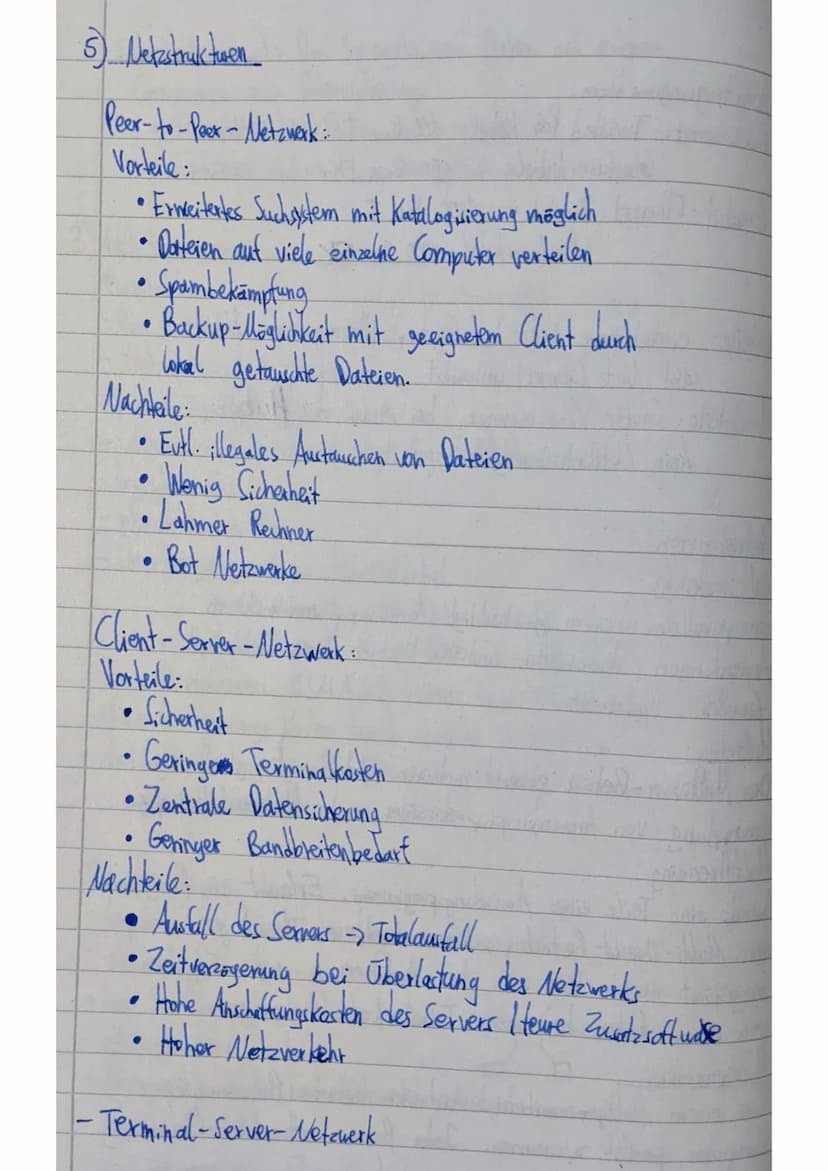 5) Netzstrukturen
Peer-to-Peer-Netzwerk:
Vorteile:
• Erweitertes Suchsystem mit Katalogisierung möglich
• Dateien auf viele einzelne Computer verteilen
• Spambekämpfung
• Backup-Möglichkeit mit geeignetem Client durch
lokal getauschte Dateien.
Nachteile:
• Evtl. illegales Austauschen von Dateien
• Wenig Sicherheit
• Lahmer Rechner
• Bot Netzwerke
Client-Server-Netzwerk:
Vorteile:
• Sicherheit
• Geringe Terminalkosten
• Zentrale Datensicherung
• Geringer Bandbreitenbedarf
Nachteile:
• Ausfall des Servers -> Totalausfall
• Zeitverzögerung bei Überlastung des Netzwerks
• Hohe Anschaffungskosten des Servers / teure Zusatzsoftware
• Hoher Netzverkehr
- Terminal-Server-Netzwerk